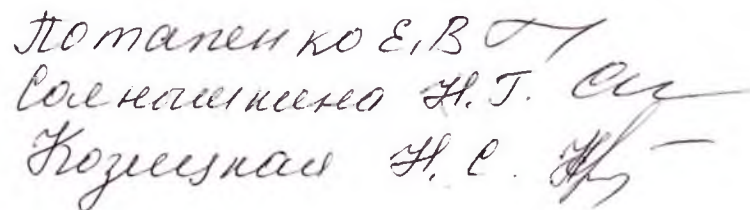 Потапенко Е.В
Солнышкина Н.Г.
Козицкая Н.С.